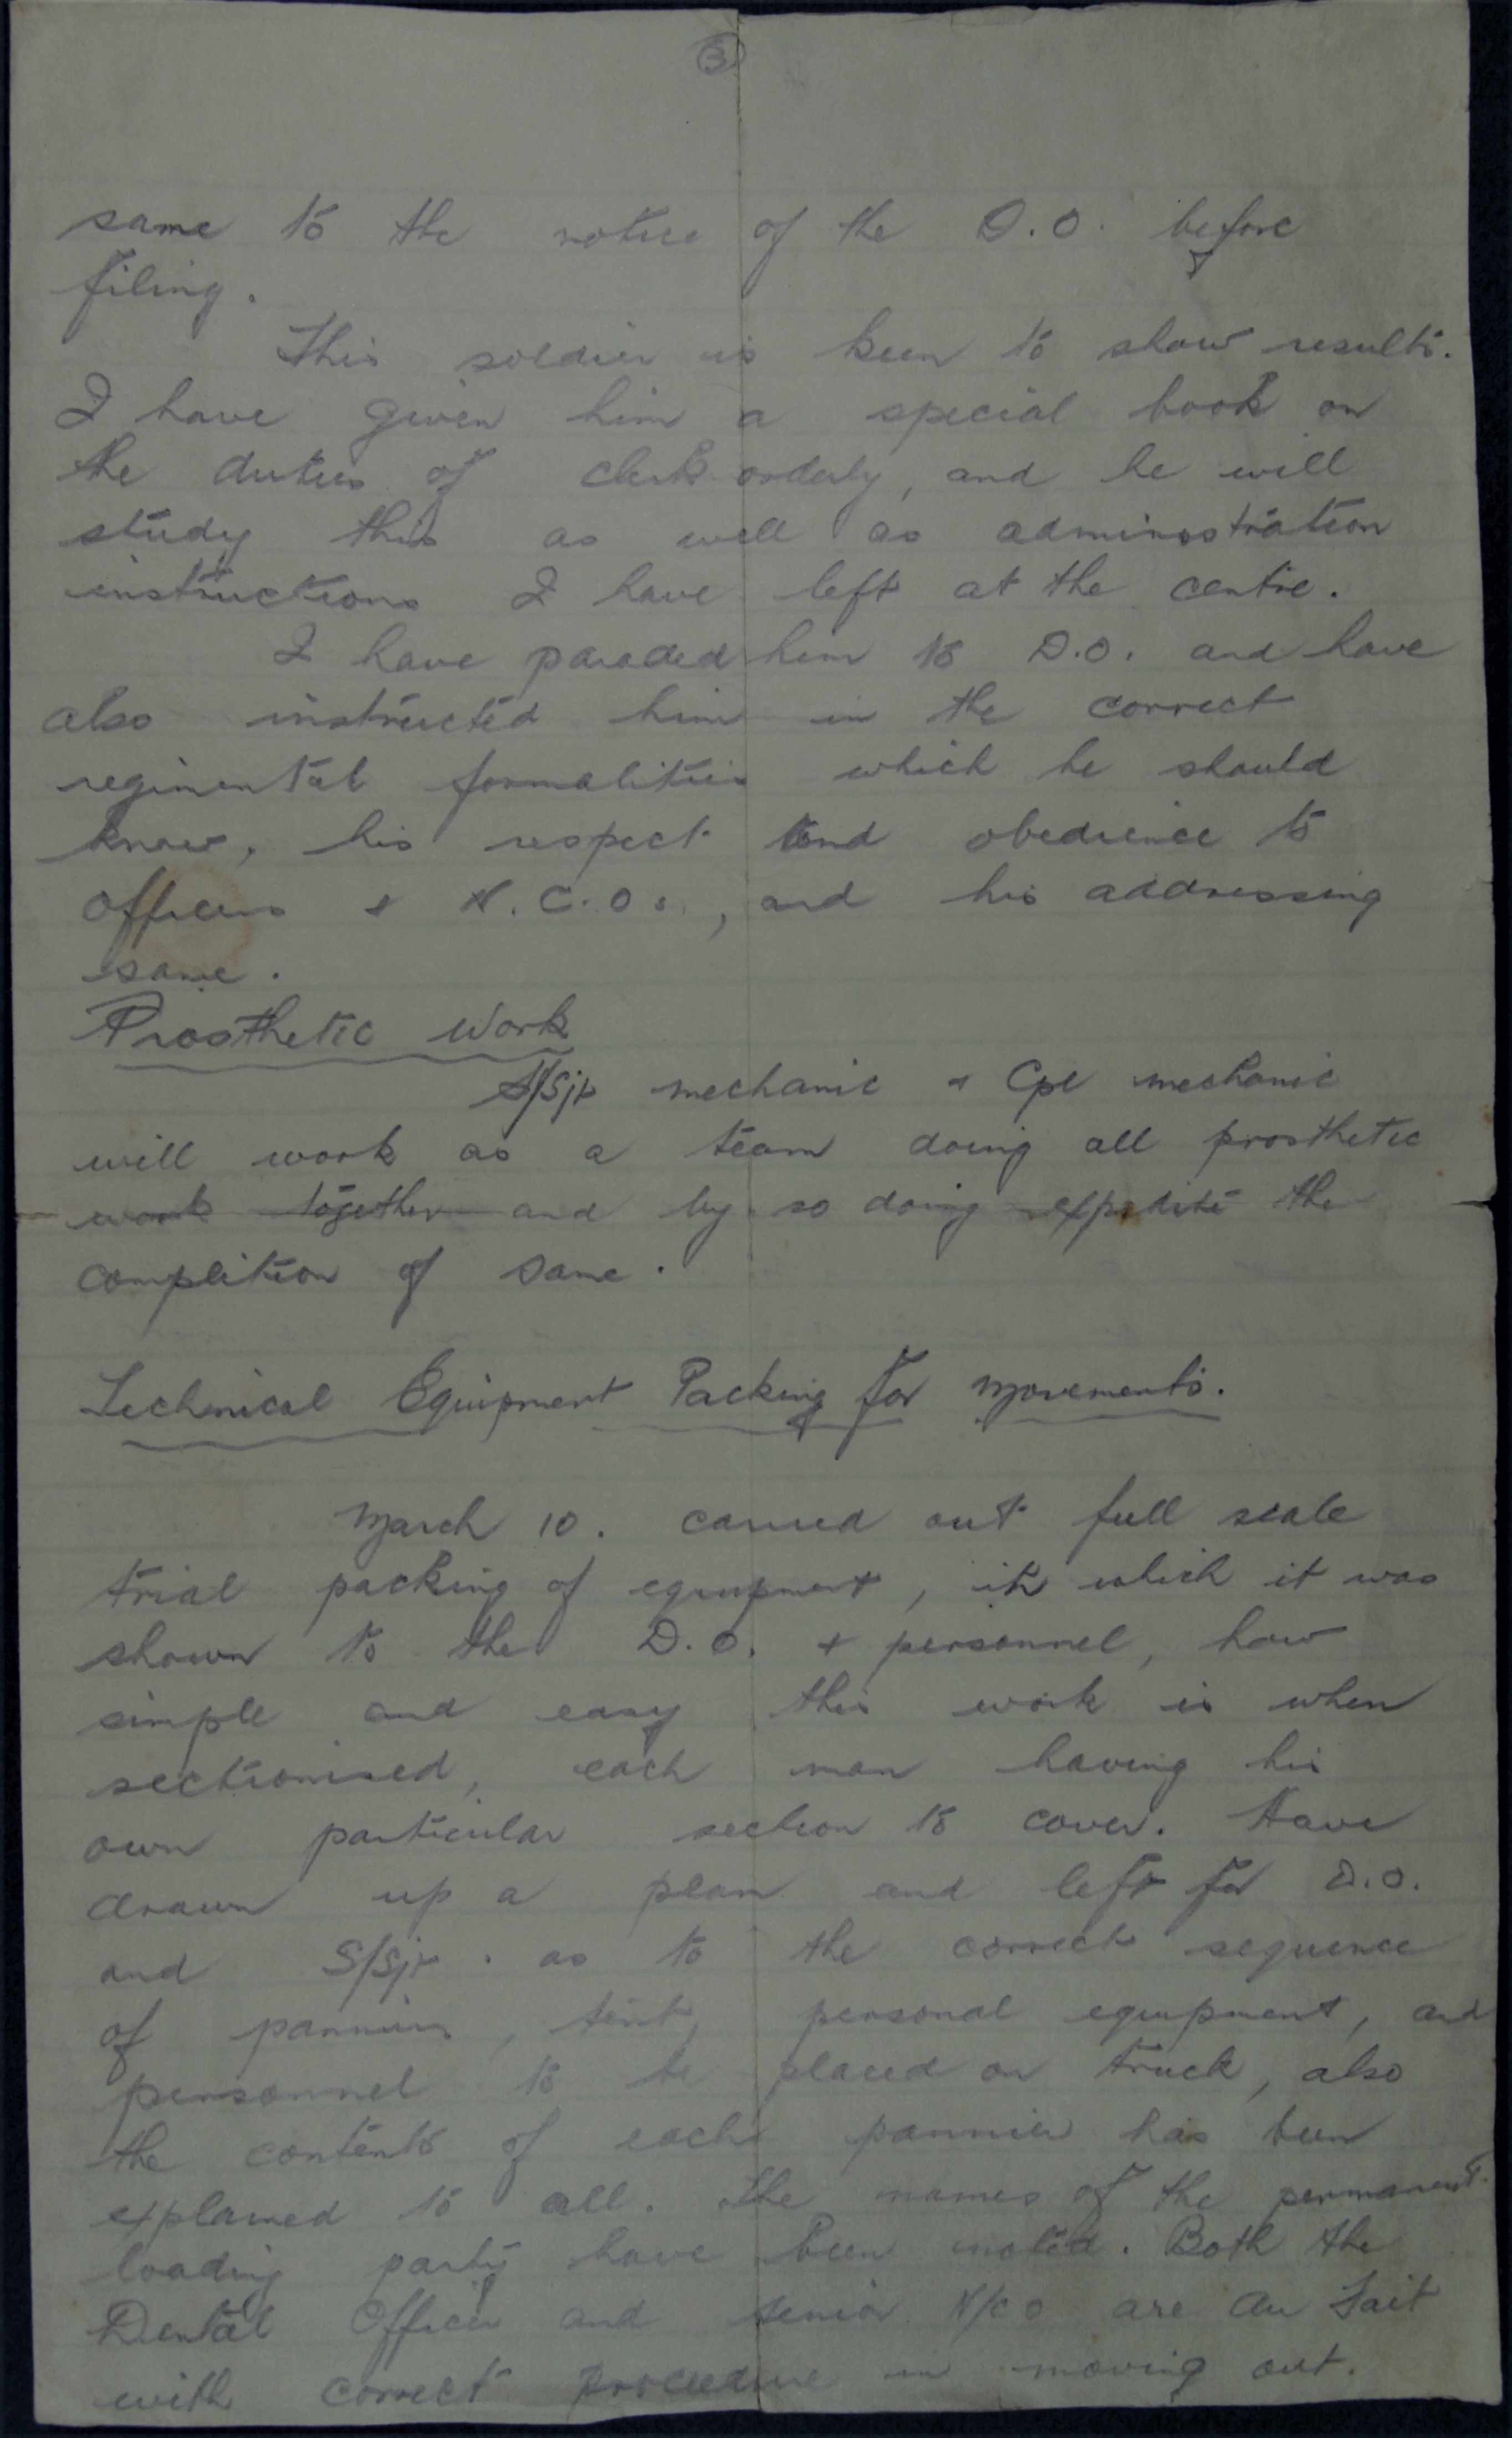 3
same to the notice of the D.O. before
filing.
This soldier is keen to show results.
I have given him a special book on
the duties of clerk orderly, and he will
study this as well as administration
instructions I have left at the centre.
I have paraded him to D.O. and have
also instructed him in the correct
regimental formalities which he should
know, his respect and obedience to
Officers & N.C.Os., and his addressing
same.
Prosthetic Work
S/Sjt mechanic & Cpl mechanic
will work as a team doing all prosthetic
work together and by so doing expedite the
complition of same.
Technical Equipment Packing for Movements.
March 10. carried out full scale
trial packing of equipment, in which it was
shown to the D.O. & personnel, how
simple and easy this work is when
sectionised, each man having his
own particular section to cover. Have
drawn up a plan and left for D.O.
and S/Sjt. as to the correct sequence
of panniers, tent, personal equipment, and
personnel to be placed on truck, also
the contents of each pannier has been
explained to all. The names of the permanent
loading party have been noted. Both the
Dental Officer and senior N/CO are au fait
with correct proceedure in moving out.